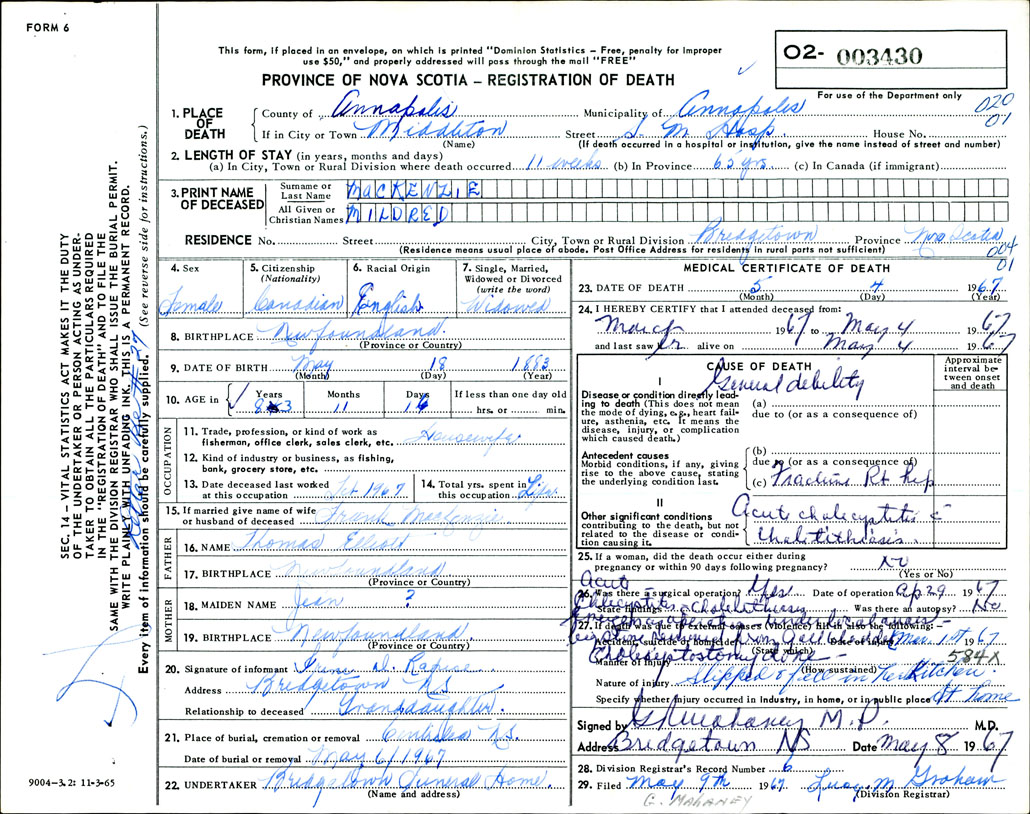 FORM 6
This form, if placed in an envelope, on which is printed "Dominion Statistics – Free, penalty for improper
use $50," and properly addressed will pass through the mail "FREE"
O2- 003430
PROVINCE OF NOVA SCOTIA – REGISTRATION OF DEATH
For use of the Department only
020
01
1. PLACE OF DEATH
County of Annapolis Municipality of Annapolis
If in City or Town Middleton Street S. M. Hosp. House No.
(Name) (If death occurred in a hospital or institution, give the name instead of street and number)
2. LENGTH OF STAY (in years, months and days)
(a) In City, Town or Rural Division where death occurred 11 weeks (b) In Province 62 yrs (c) In Canada (if immigrant)
3. PRINT NAME OF DECEASED
Surname or Last Name MACKENZIE
All Given or Christian Names MILDRED
RESIDENCE No. Street City, Town or Rural Division Bridgetown Province Nova Scotia
(Residence means usual place of abode. Post Office Address for residents in rural parts not sufficient)
004
01
4. Sex Female
5. Citizenship (Nationality) Canadian
6. Racial Origin English
7. Single, Married, Widowed or Divorced (write the word) Widowed
8. BIRTHPLACE Newfoundland.
(Province or Country)
9. DATE OF BIRTH May 18 1883
(Month) (Day) (Year)
10. AGE in Years 83 Months 11 Days 16 If less than one day old hrs. or min.
OCCUPATION
11. Trade, profession, or kind of work as
fisherman, office clerk, sales clerk, etc. Housewife
12. Kind of industry or business, as fishing,
bank, grocery store, etc.
13. Date deceased last worked
at this occupation Feb 1967
14. Total yrs. spent in
this occupation Life
15. If married give name of wife
or husband of deceased Frank MacKenzie
FATHER
16. NAME Thomas Elliott
17. BIRTHPLACE Newfoundland
(Province or Country)
MOTHER
18. MAIDEN NAME Jean ?
19. BIRTHPLACE Newfoundland.
(Province or Country)
20. Signature of informant
Address Bridgetown N.S.
Relationship to deceased Granddaughter.
21. Place of burial, cremation or removal N.S.
Date of burial or removal May 6/1967
22. UNDERTAKER Bridgetown Funeral Home.
(Name and address)
MEDICAL CERTIFICATE OF DEATH
23. DATE OF DEATH 5 4 1967
(Month) (Day) (Year)
24. I HEREBY CERTIFY that I attended deceased from:
March 1967 to May 4 1967
and last saw her alive on May 4 1967
CAUSE OF DEATH
Approximate interval between onset and death
I
General debility
Disease or condition directly leading to death (This does not mean the mode of dying, e.g., heart failure, asthenia, etc. It means the disease, injury, or complication which caused death.)
(a)
due to (or as a consequence of)
Antecedent causes
Morbid conditions, if any, giving rise to the above cause, stating the underlying condition last.
(b)
due to (or as a consequence of)
(c) Fracture Rt hip
II
Other significant conditions
contributing to the death, but not related to the disease or condition causing it.
Acute cholecystitis c
Cholelithiasis.
25. If a woman, did the death occur either during
pregnancy or within 90 days following pregnancy? No
(Yes or No)
26. Was there a surgical operation? Yes Date of operation Ap 29 1967
State findings Acute Cholecystitis Cholelithiasis Was there an autopsy? No
27. If death was due to external causes (violence) fill in also the following:
Accident, suicide or homicide? (State which) Date of injury Mar. 1st 1967
Manner of injury Cholecystostomy done – (How sustained) 584X
Nature of injury slipped & fell in her kitchen
Specify whether injury occurred in industry, in home, or in public place At home
Signed by Mahaney M.D. M.D.
Address Bridgetown NS Date May 8 1967
28. Division Registrar's Record Number 6
29. Filed May 9th 1967 Lucy M Graham
(Division Registrar)
G. MAHANEY
SEC. 14 – VITAL STATISTICS ACT MAKES IT THE DUTY
OF THE UNDERTAKER OR PERSON ACTING AS UNDER-
TAKER TO OBTAIN ALL THE PARTICULARS REQUIRED
IN THE "REGISTRATION OF DEATH" AND TO FILE THE
SAME WITH THE DIVISION REGISTRAR WHO SHALL ISSUE THE BURIAL PERMIT.
WRITE PLAINLY WITH UNFADING INK. THIS IS A PERMANENT RECORD.
Every item of information should be carefully supplied. (See reverse side for instructions.)
9004–3.2: 11-3-65